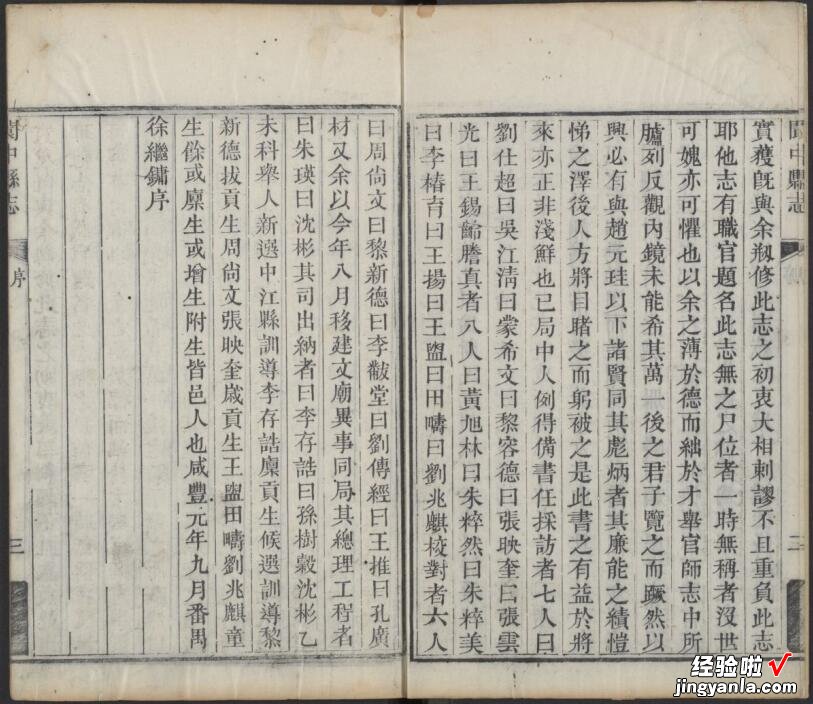 閬中縣志
實穫旣與余剏修此志之初衷大相剌謬不且重負此志
耶他志有職官題名此志無之尸位者一時無稱者沒世
可媿亦可懼也以余之薄於德而絀於才舉官師志中所
臚列反觀內鏡未能希其萬一後之君子覽之而蹶然以
興必有與趙元珪以下諸賢同其彪炳者其廉能之績愷
悌之澤後人方將目睹之而躬被之是此書之有益於將
來亦正非淺鮮也已局中人例得備書任採訪者七人曰
劉仕超曰吳江淸曰蒙希文曰黎容德曰張映奎曰張雲
光曰王錫齡謄真者八人曰黃旭林曰朱粹然曰朱粹美
曰李椿育曰王揚曰王盥曰田疇曰劉兆麒校對者六人
二
曰周尙文曰黎新德曰李黻堂曰劉傳經曰王推曰孔廣
材又余以今年八月移建文廟異事同局其總理工程者
曰朱瑛曰沈彬其司出納者曰李存誥曰孫樹穀沈彬乙
未科舉人新選中江縣訓導李存誥廩貢生候選訓導黎
新德拔貢生周尙文張映奎歲貢生王盥田疇劉兆麒童
生餘或廩生或增生附生皆邑人也咸豐元年九月番禺
徐繼鏞序
閬中縣志
序
三
经验啦√
jingyanla.com